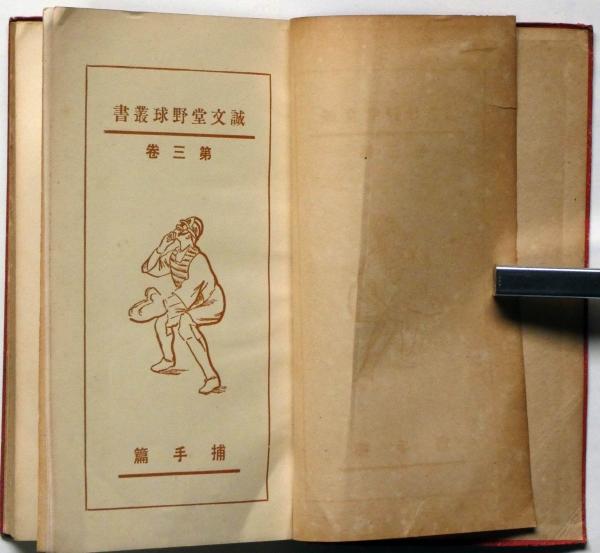 誠文堂野球叢書
第三卷
捕手篇